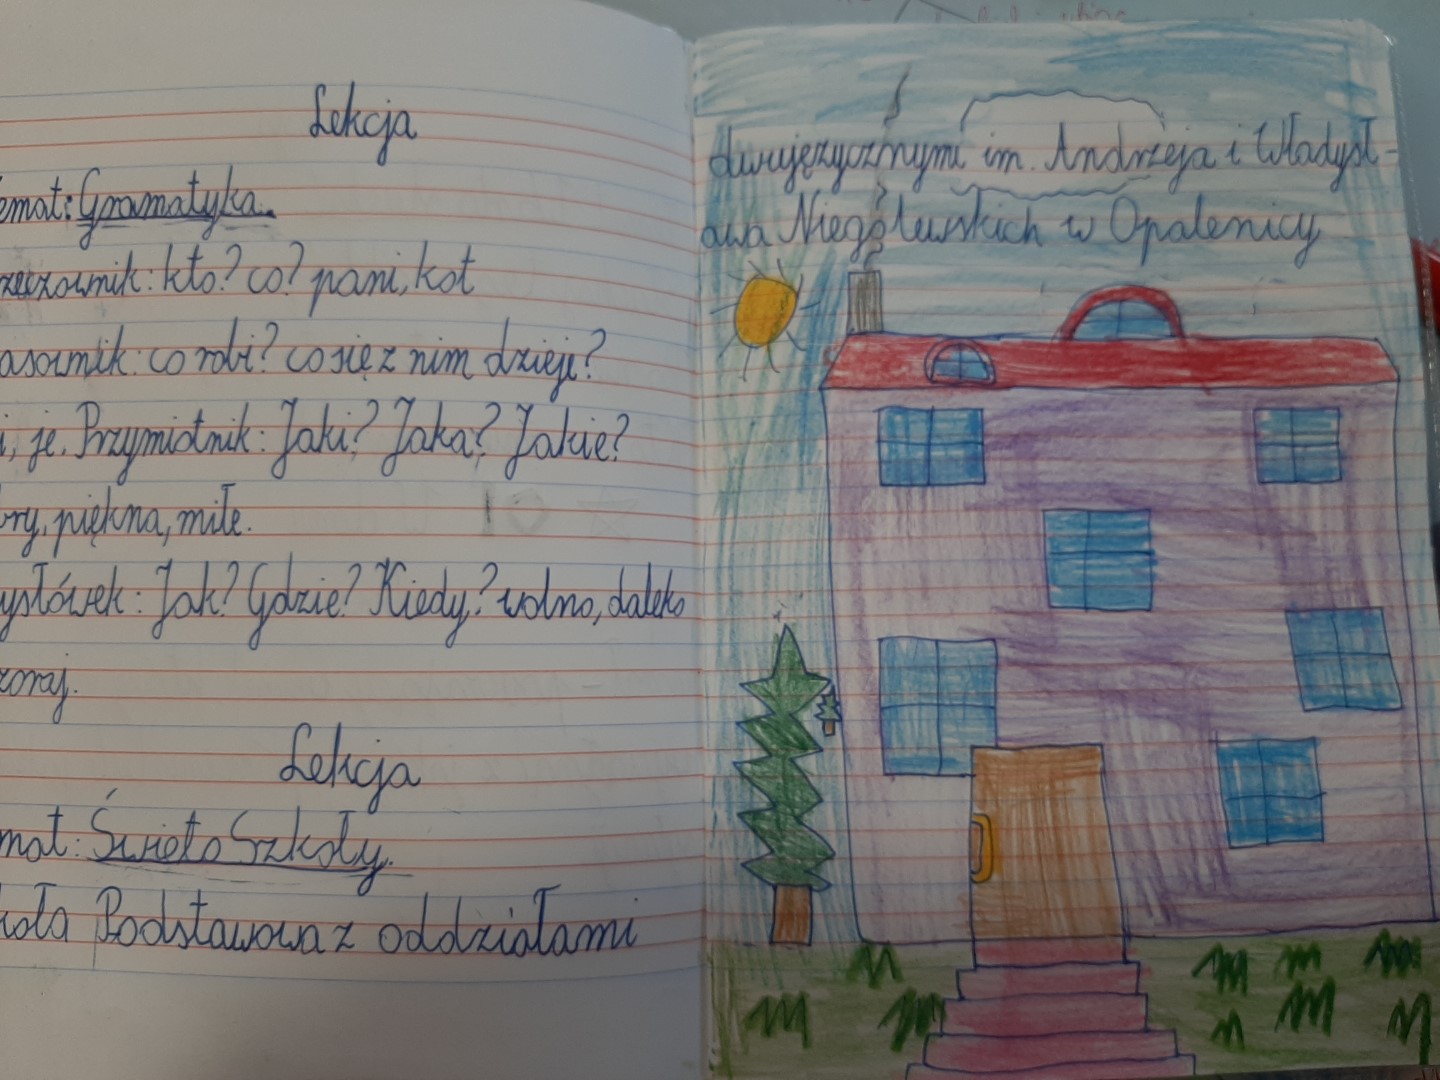 Lekcja
emat: Gramatyka.
zeczownik: kto? co? pani, kot
asownik: co robi? co się z nim dzieje?
i, je. Przymiotnik: Jaki? Jaka? Jakie?
bry, piękna, miłe.
ysłówek: Jak? Gdzie? Kiedy? wolno, daleko
zoraj.
Lekcja
mat: Święto Szkoły.
koła Podstawowa z oddziałami
dwujęzycznymi im. Andrzeja i Władysł-
awa Niegolewskich w Opalenicy